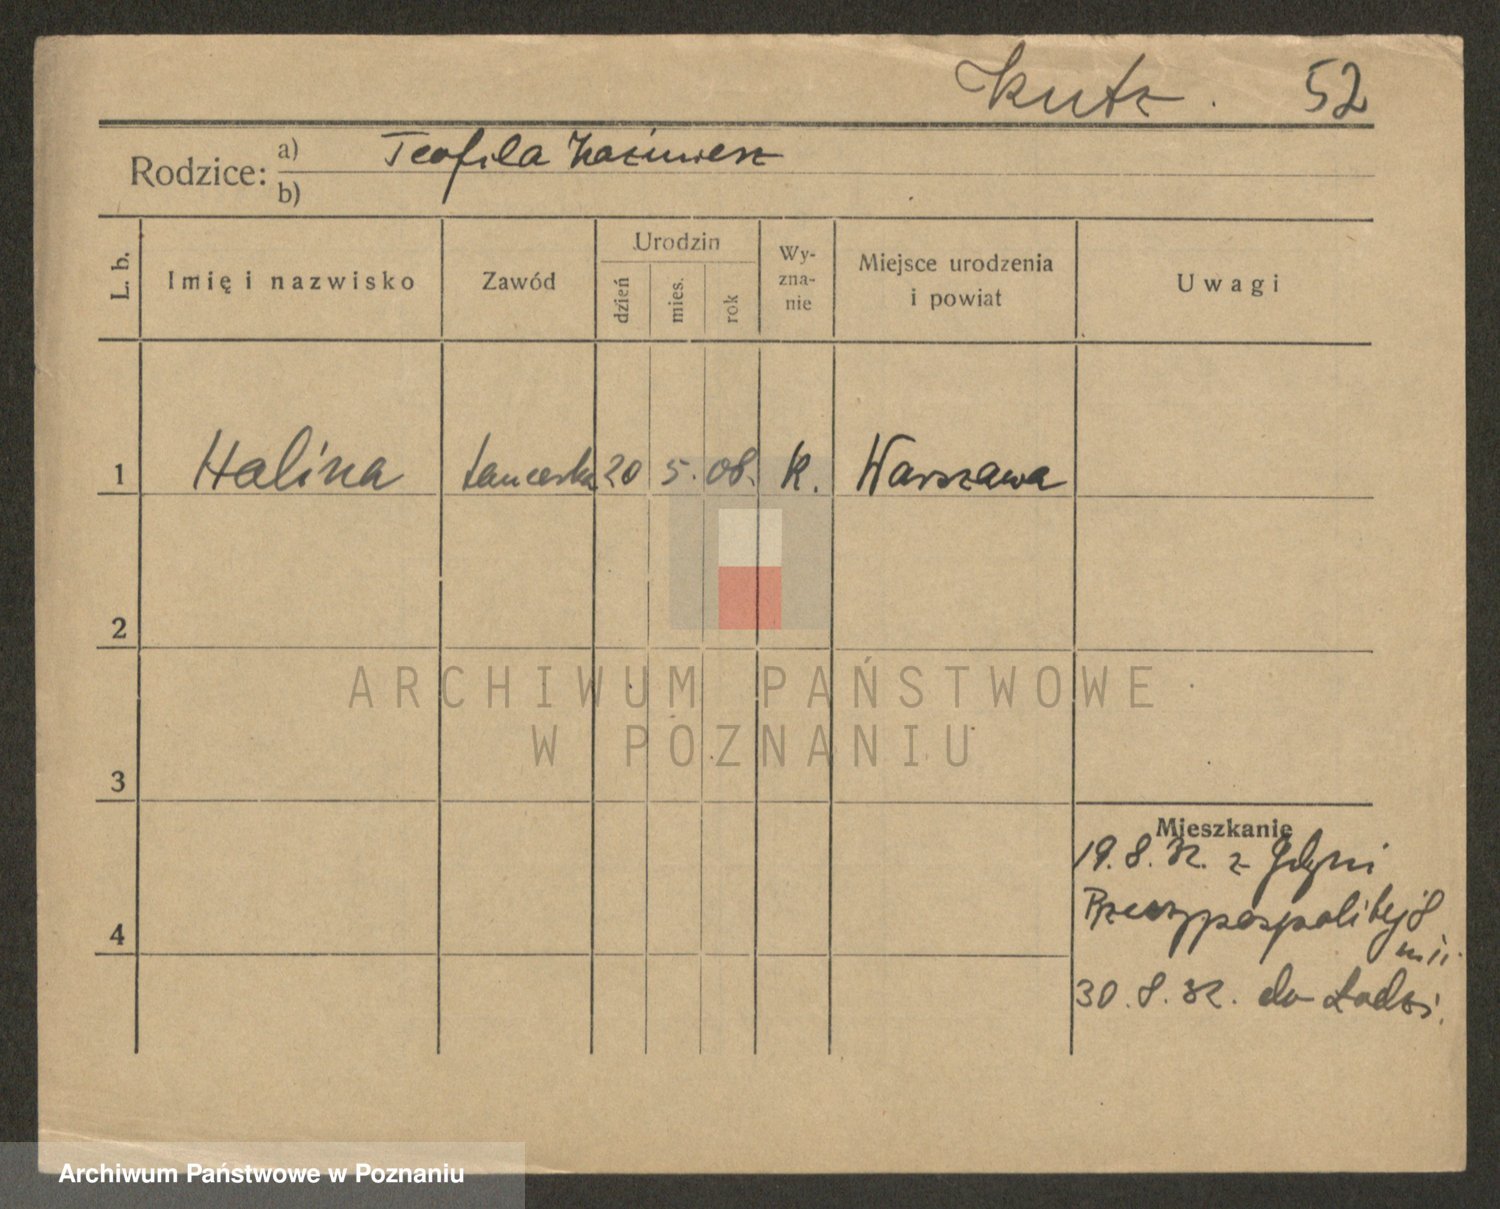 Skutz. 52
Rodzice: a) Teofila Kazimierz
b)
L. b.
Imię i nazwisko
Zawód
Urodzin
dzień
mies.
rok
Wy-
zna-
nie
Miejsce urodzenia
i powiat
Uwagi
1 Halina tancerka 20 5. 08. k. Warszawa
2
3
4
Mieszkanie
19. 8. 32. z Gdyni
Rzeczypospolitej 8
30. 8. 32. do Łodzi.
ARCHIWUM PAŃSTWOWE
W POZNANIU
Archiwum Państwowe w Poznaniu